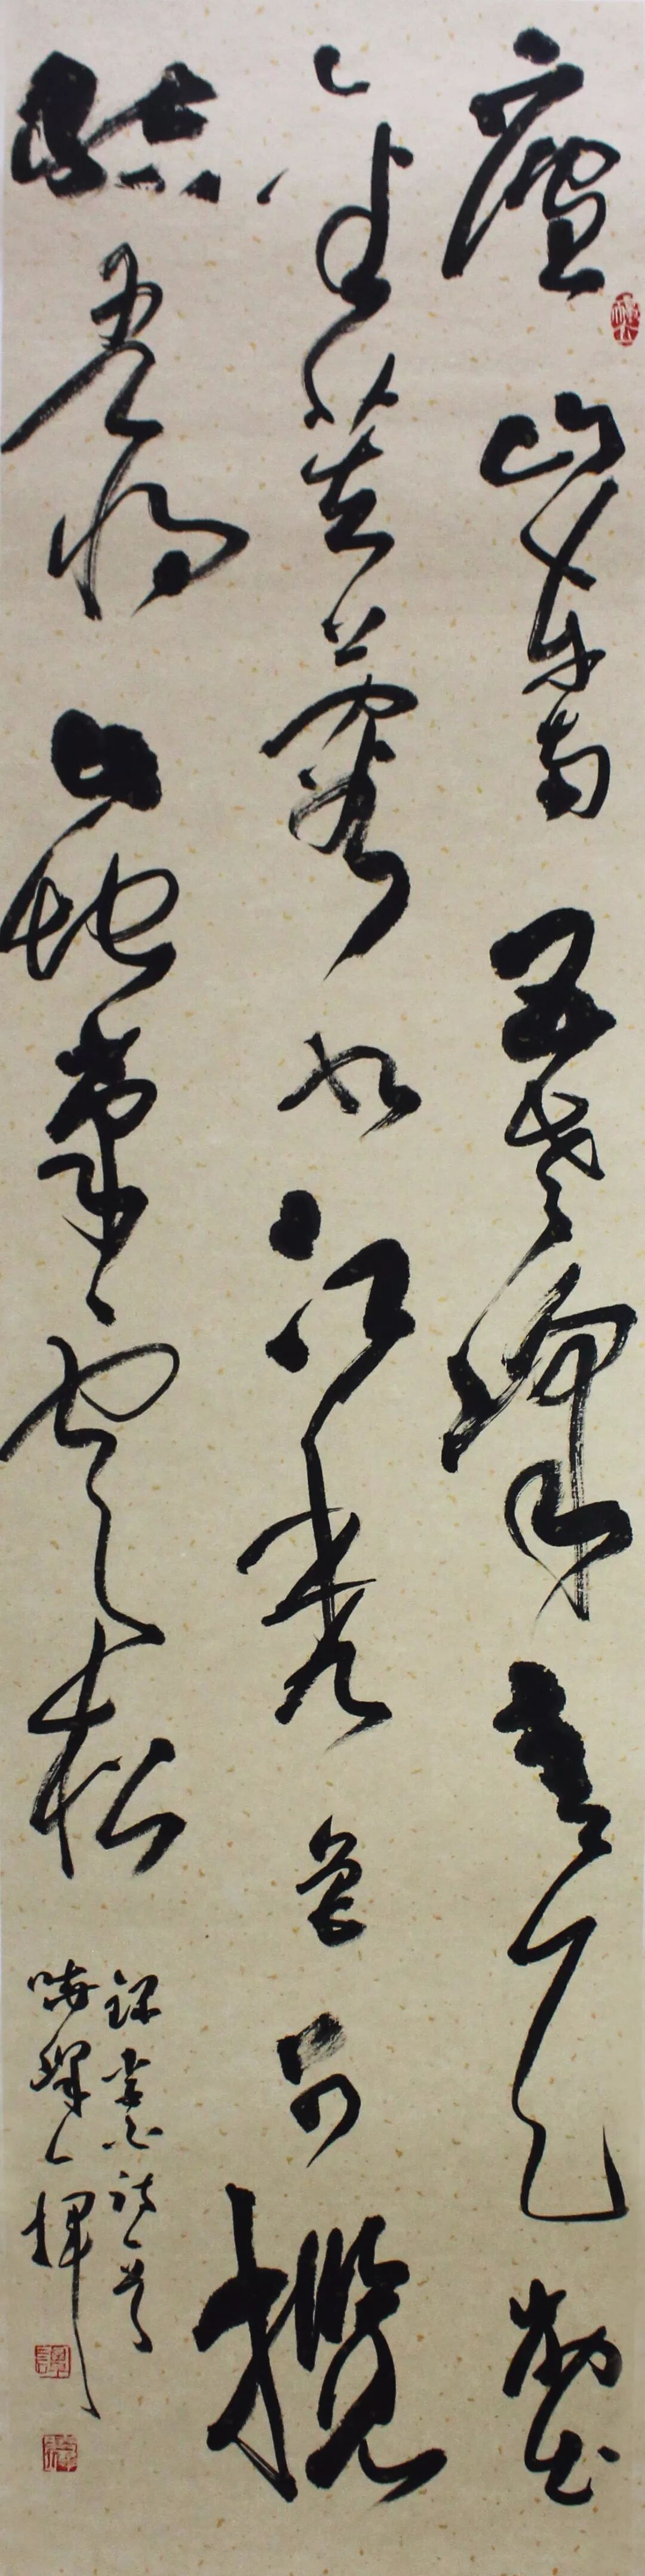 廬山東南五老峰青天削出
金芙蓉九江秀色可攬
結吾將此地巢雲松
錄李白詩一首